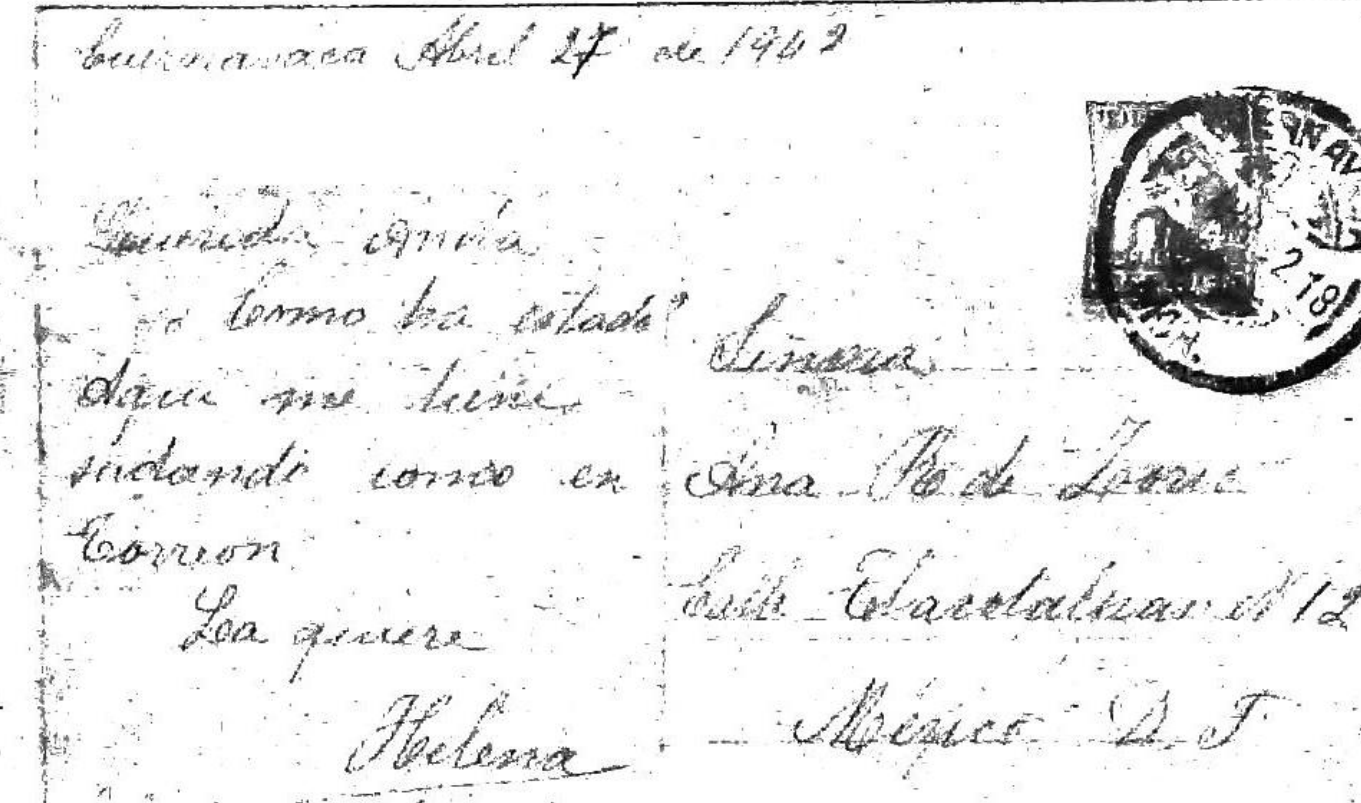 Cuernavaca Abril 27 de 1942
Querida Anita
como ha estado?
Aqui me tiene
sudando como en
Torreon
La quiere
Helena
Señora
Ana R de
Calle N 12
México D. F.